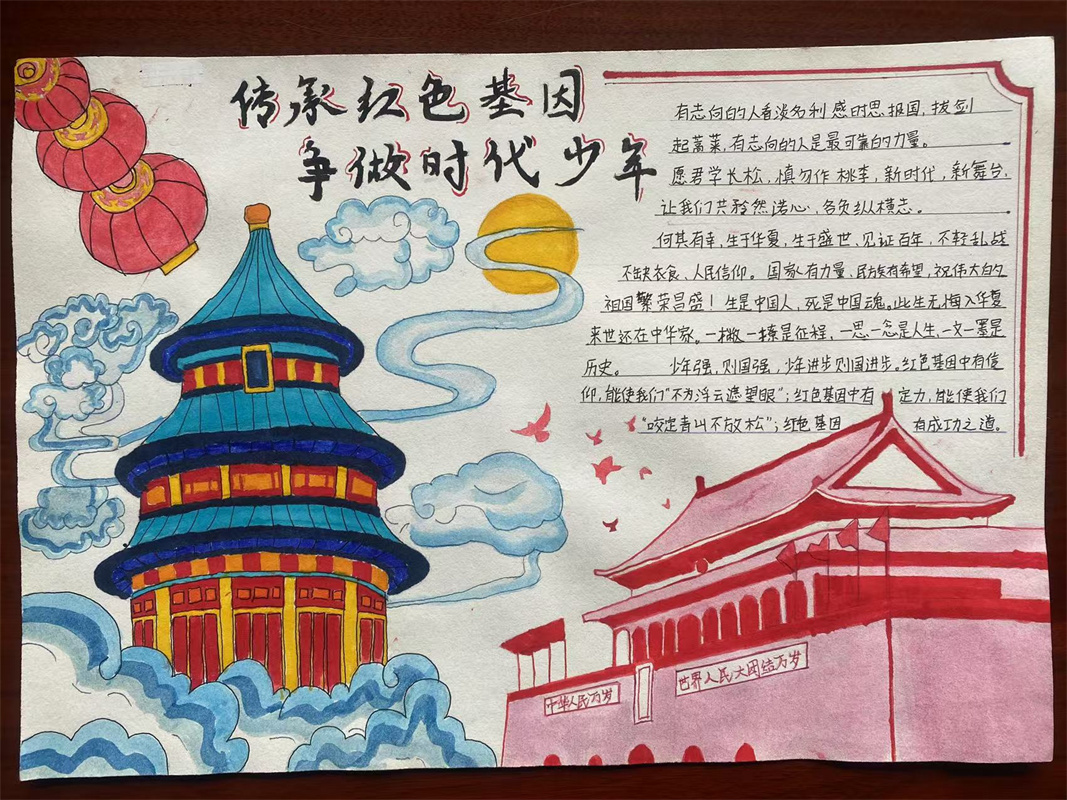 传承红色基因
争做时代少年
有志向的人看淡名利感时思报国，拔剑
起蒿莱，有志向的人是最可靠的力量。
愿君学长松，慎勿作桃李，新时代，新舞台，
让我们共矜然诺心，各负纵横志。
何其有幸，生于华夏，生于盛世，见证百年，不轻乱战
不缺衣食、人民信仰。国家有力量、民族有希望，祝伟大的
祖国繁荣昌盛！生是中国人，死是中国魂。此生无悔入华夏
来世还在中华家。一撇一捺是征程，一思一念是人生，一文一墨是
历史。 少年强，则国强，少年进步则国进步。红色基因中有信
仰，能使我们“不为浮云遮望眼”；红色基因中有 定力，能使我们
“咬定青山不放松”；红色基因 有成功之道。
中华人民万岁
世界人民大团结万岁